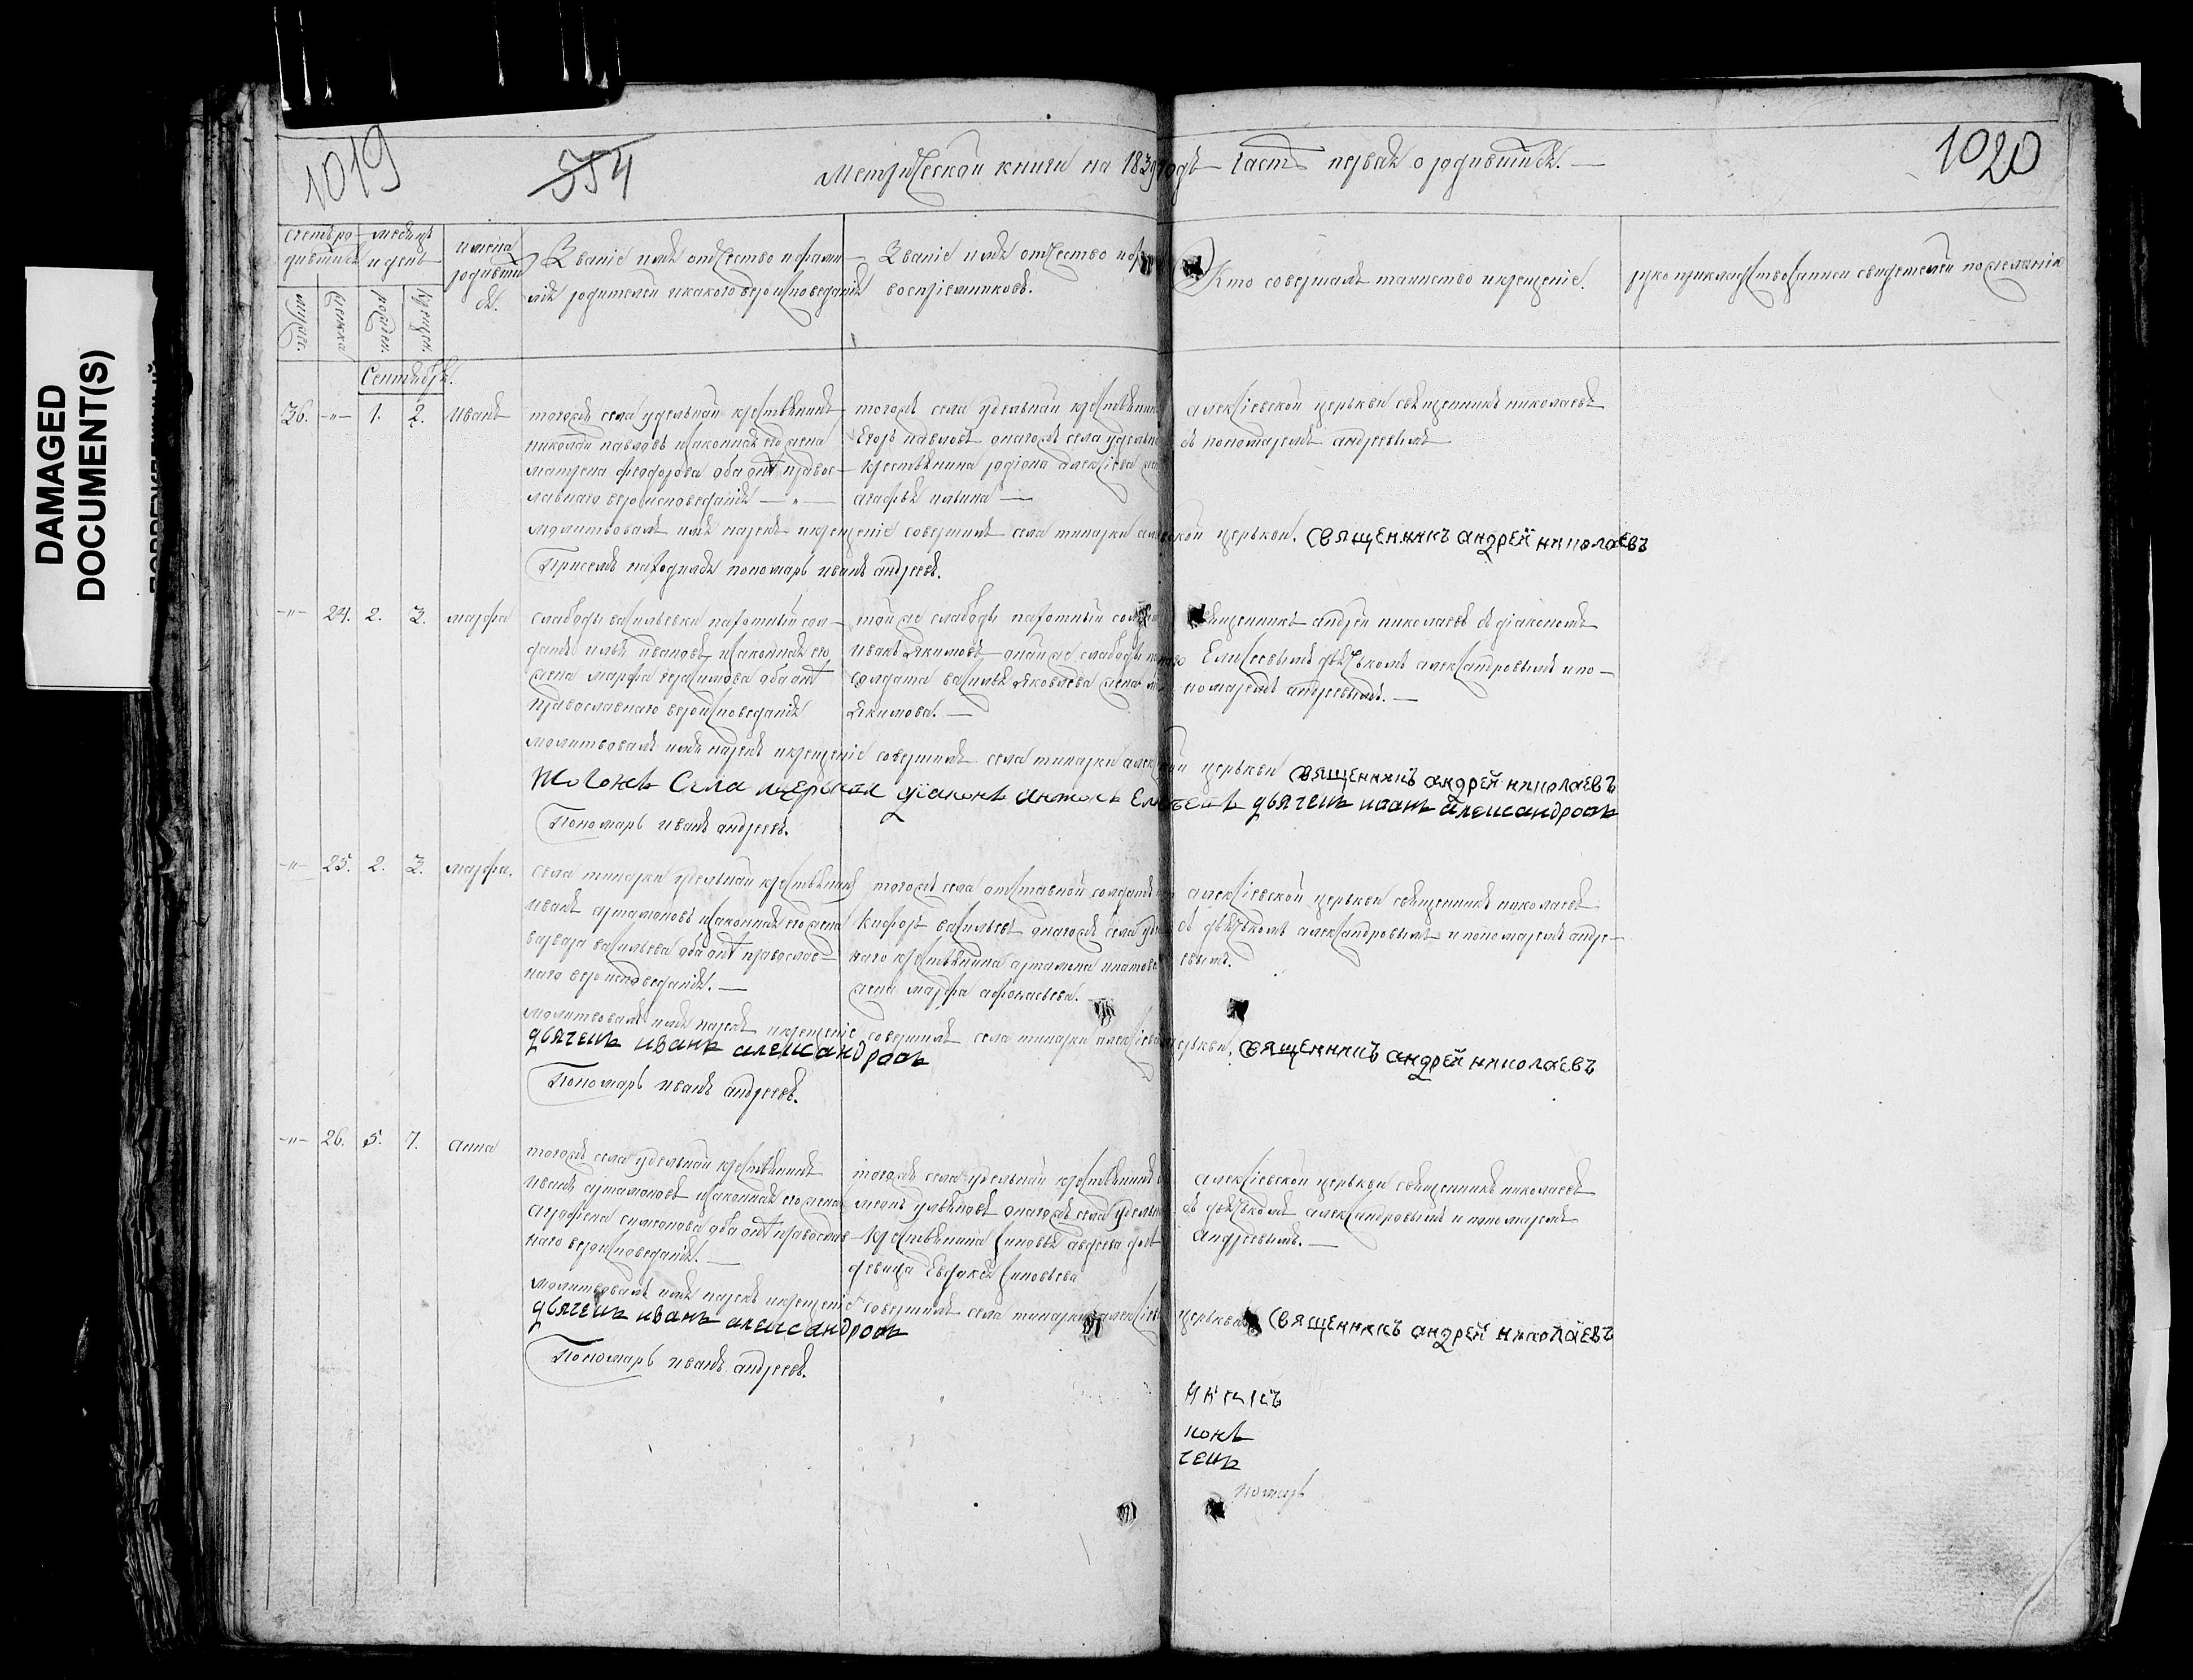 DAMAGED
DOCUMENT(S)
1019
354
Метрической книги на 1839 годъ Часть первая о родившихся.
1020
Счетъ родившихся
месяцъ и день
имена родившихся
Званіе имя отчество и фамилія родителей и какого вероисповеданія
Званіе имя отчество
воспріемниковъ.
Кто совершалъ таинство крещеніе.
рукоприкладство записи свидетелей по желанію
мужес.
женска
рожден.
крещен.
Сентябрь.
36. -"- 1. 2. Иванъ
тогожъ села удельный крестьянинъ
николай павловъ изаконная его жена
матрена феодорова оба онѣ правос-
лавнаго вероисповеданія — " —
тогожъ села удельный крестьянинъ
Егоръ павловъ онагожъ села удельна
крестьянина родіона алексіева
агафья ильина —
алексіевской церькви священникъ николаевъ
съ пономаремъ андреевымъ
молитвовалъ имя нарекъ икрещеніе совершилъ села тинарки церькви. священникъ андрей николаевъ
Присемъ находился пономарь иванъ андреевъ.
-"- 24. 2. 3. марфа
слабоды васильевки пахотный сол-
датъ илья ивановъ изаконная его
жена марфа герасимова оба онѣ
православнаго вероисповеданія
тойже слабоды пахотный
иванъ якимовъ онойже слабоды
солдата василья яковлева жена
якимова. —
священникъ андрей николаевъ съ діакономъ
Елисеевымъ дьячькомъ александровымъ и по-
номаремъ андреевымъ. —
молитвовалъ имя нарекъ икрещеніе совершилъ села тинарки церькви священникъ андрей николаевъ
Тогожъ Села церькви діаконъ Антонъ Елисеевъ дьячекъ иванъ александровъ
Пономарь иванъ андреевъ.
-"- 25. 2. 3. марфа.
села тинарки удельный крестьянинъ
иванъ артамоновъ изаконная его жена
варвара васильева оба онѣ православ-
наго вероисповеданія. —
тогожъ села отставной солдатъ
кифоръ васильевъ онагожъ села
наго крестьянина артамона
жена марфа афонасьева.
алексіевской церькви священникъ николаевъ
съ дьячькомъ александровымъ и пономаремъ андре-
евымъ.
молитвовалъ имя нарекъ икрещеніе совершилъ села тинарки церькви. священникъ андрей николаевъ
дьячекъ иванъ александровъ
Пономарь иванъ андреевъ.
-"- 26. 5. 7. анна
тогожъ села удельный крестьянинъ
иванъ артамоновъ изаконная его жена
аграфена симеонова оба онѣ православ-
наго вероисповеданія. —
тогожъ села удельный крестьянинъ
онагожъ села
крестьянина зиновья авдеева дочь
девица Евдокея зиновьева
алексіевской церькви священникъ николаевъ
съ дьячькомъ александровымъ и пономаремъ
андреевымъ. —
молитвовалъ имя нарекъ икрещеніе совершилъ села тинарки церькви священникъ андрей николаевъ
дьячекъ иванъ александровъ
Пономарь иванъ андреевъ.
никъ
конъ
чекъ
номарь